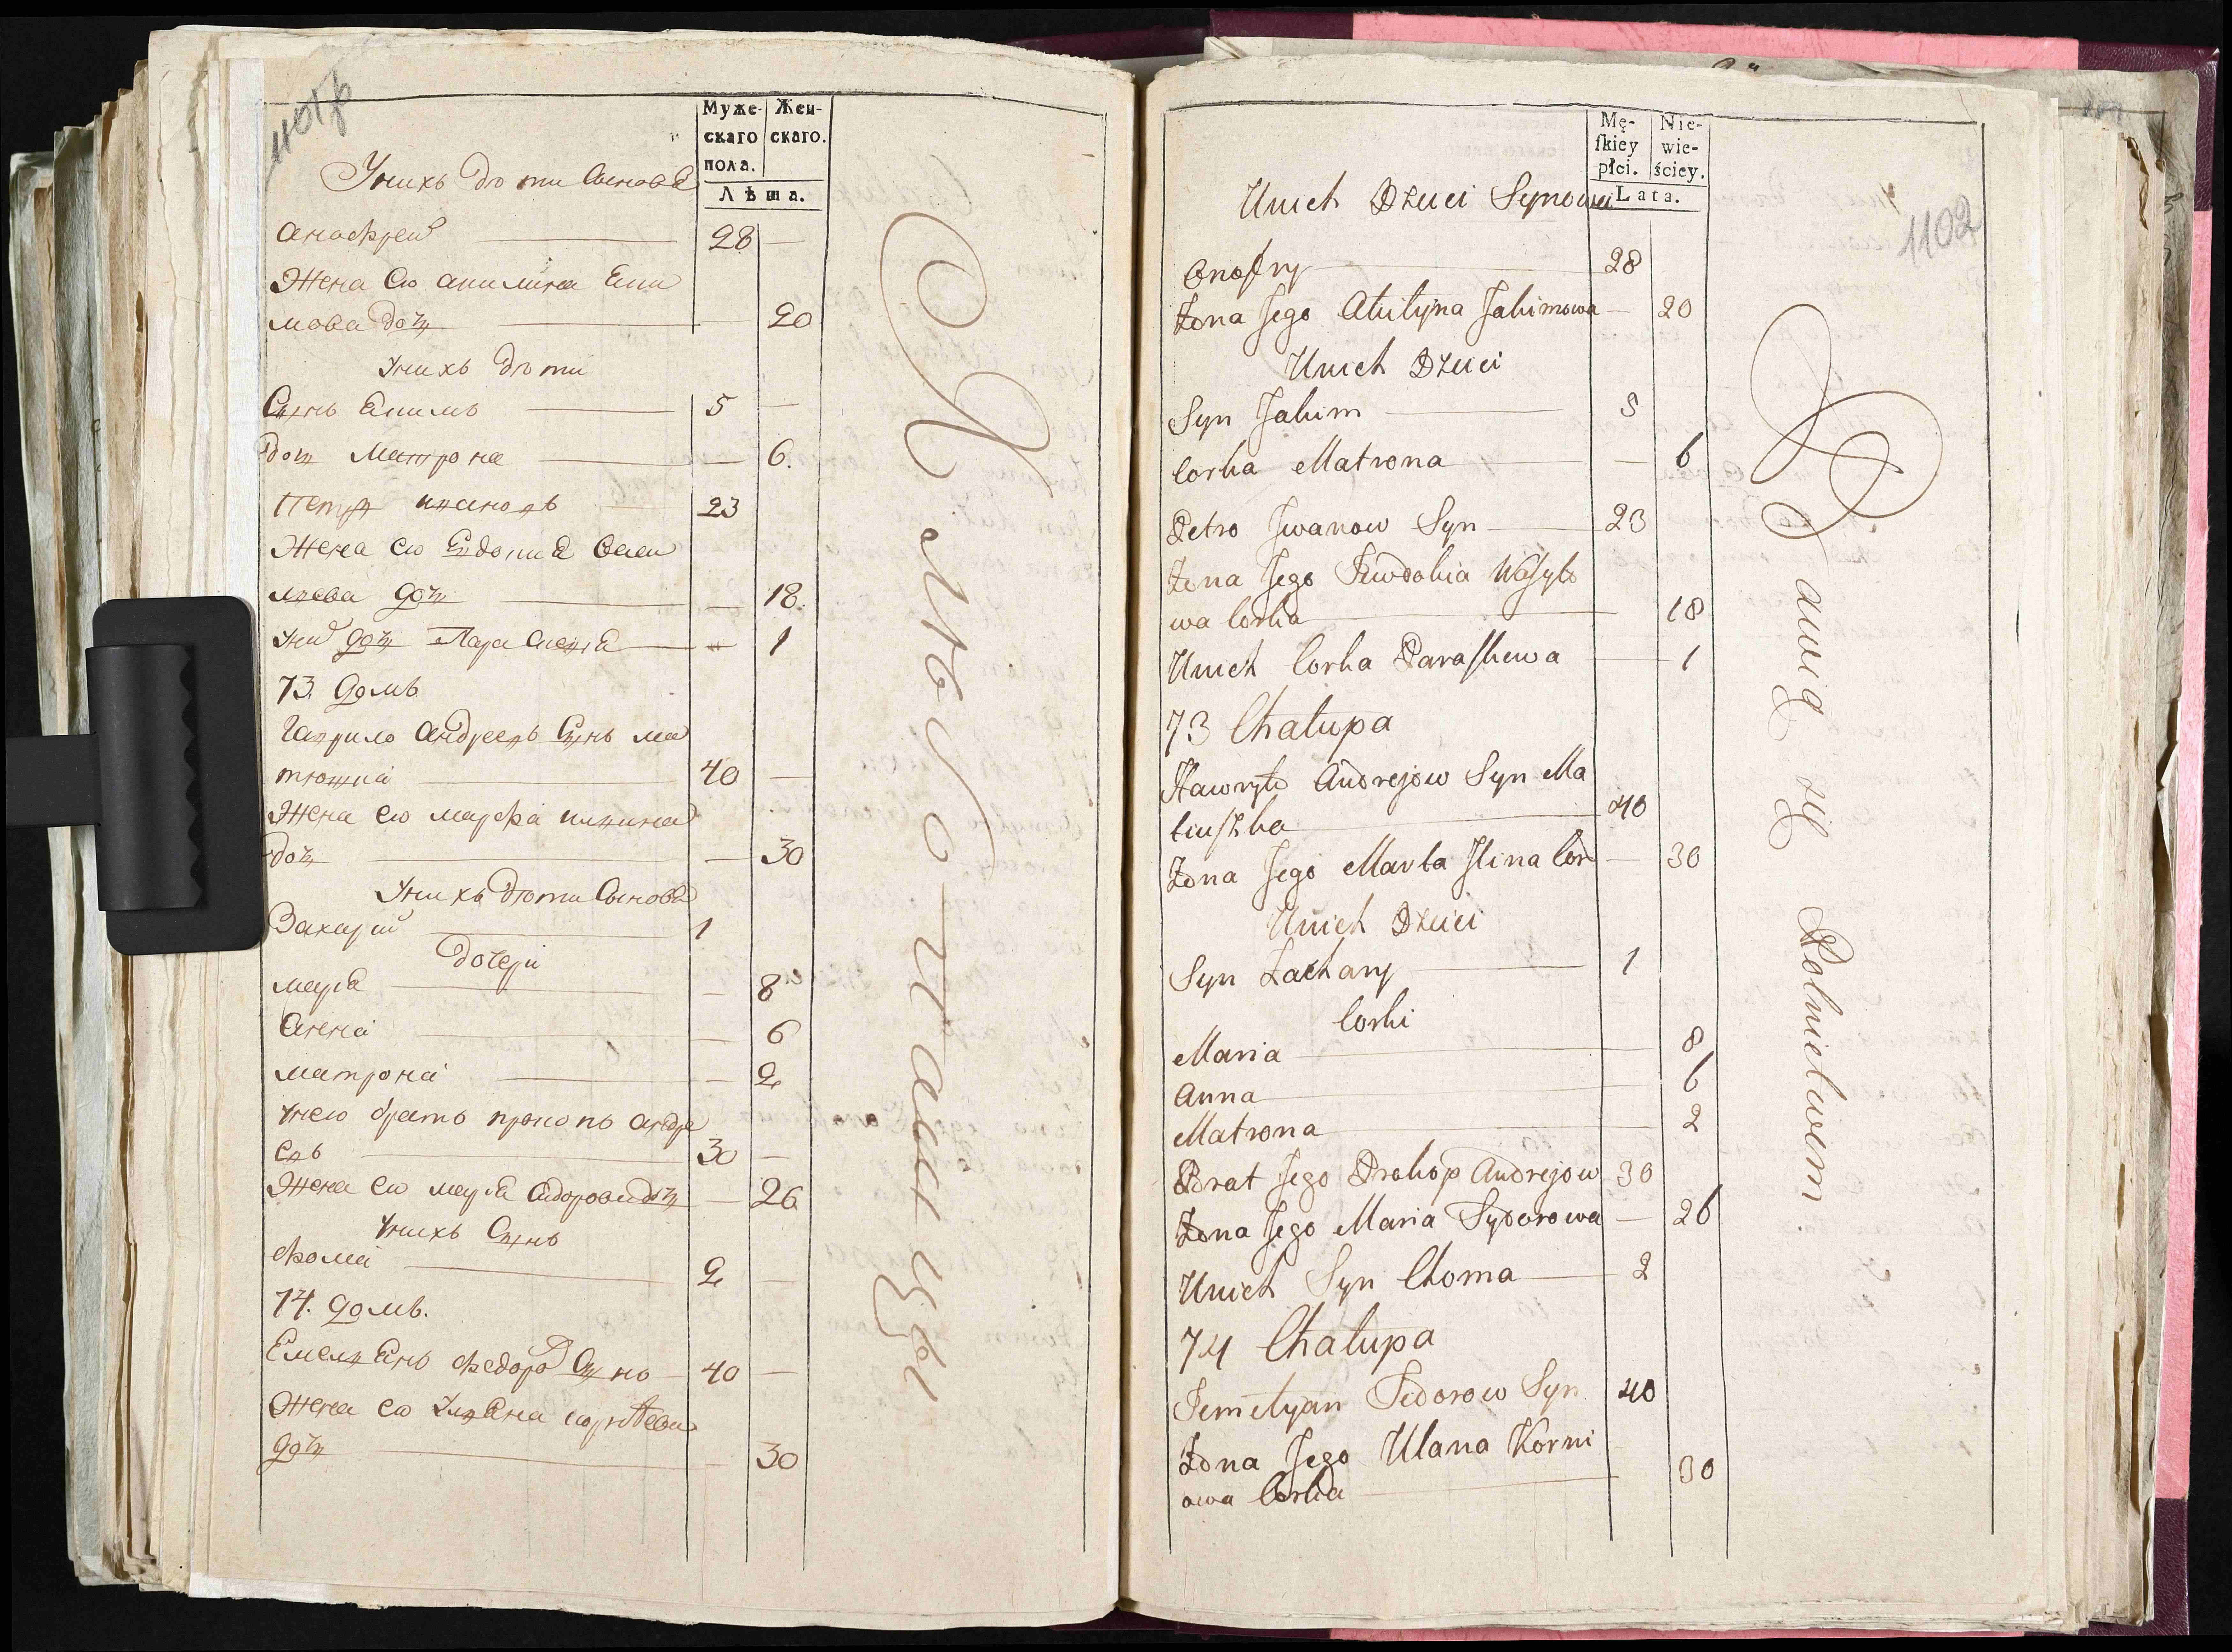 1101 об
Муже-
скаго
пола.
Жен-
скаго.
Лѣта.
Унихъ дѣти Сынова
Анофрей 28 —
Жена Ею Акилина Еки
мова доч 20
Унихъ дѣти
Сынъ Екимъ 5 —
доч Матрона — 6.
Петр ивановъ 23
Жена ею Евдокиа Васи
лиева доч — 18.
Уний доч Параскевиа — 1
73. Домъ
Гаврило Андреевъ Сынъ ма
тюшка 40 —
Жена ею марфа илиина
доч — 30
Унихъ дѣти Сынова
Захарий 1
дочери
мариа — 8
Анна — 6
матрона — 2
Унею братъ прокопъ андре
евъ 30 —
Жена ею мариа Сидорова доч — 26
Унихъ Сынъ
фома 2 —
74. Домъ.
Емелианъ федоро Сынъ 40 —
Жена ею Улиана корнѣева
доч — 30
Хлѣбопашцы
Mę-
skiey
płci.
Nie-
wie-
ściey.
Lata.
1102
Unich Dzieci Synowie
Onofry 28
Żona Jego Akilyna Jakimowa — 20
Unich Dzieci
Syn Jakim 5
Corka Matrona — 6
Petro Iwanow Syn 23
Żona Jego Jewdokia Wasyło
wa Corka 18
Unich Corka Paraskewa 1
73 Chałupa
Hawryło Andrejow Syn Ma
tiuszka 40
Żona Jego Marta Ilina Cor — 30
Unich Dzieci
Syn Zachary 1
Corki
Maria 8
Anna 6
Matrona 2
Brat Jego Prokop Andrejow 30
Żona Jego Maria Sydorowa — 26
Unich Syn Choma 2
74 Chałupa
Jemelyan Fedorow Syn 40
Żona Jego Ulana Korni
owa Corka 30
Bawią się Rolnictwem